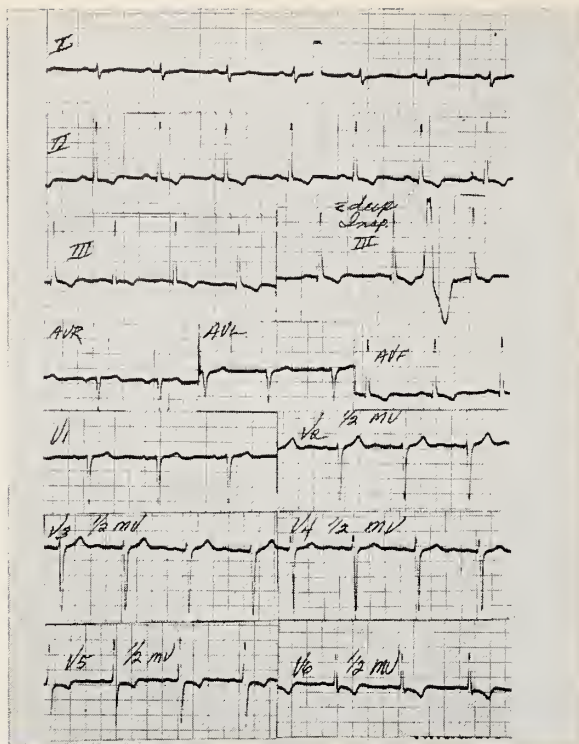 I
II
III
c̄ deep
Insp.
III
AVR
AVL
AVF
V1
V2 1/2 MV
V3 1/2 mV
V4 1/2 mV
V5 1/2 mV
V6 1/2 mV